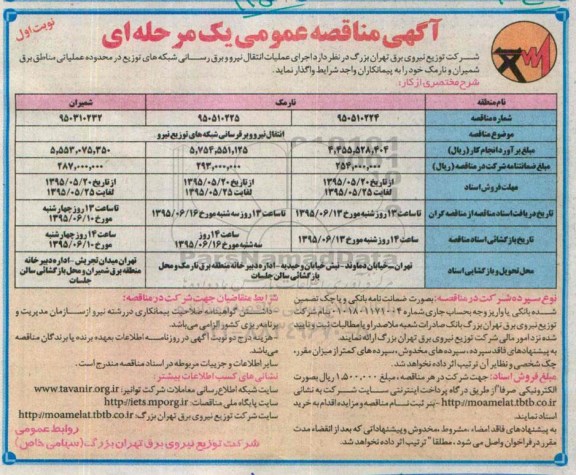 نوبت اول
آگهی مناقصه عمومی یک مرحله ای
شرکت توزیع نیروی برق تهران بزرگ در نظر دارد اجرای عملیات انتقال نیرو و برق رسانی شبکه های توزیع در محدوده عملیاتی مناطق برق
شمیران و نارمک خود را به پیمانکاران واجد شرایط واگذار نماید.
شرح مختصری از کار:
نام منطقه نارمک شمیران
شماره مناقصه ۹۵۰۵۱۰۲۲۴ ۹۵۰۵۱۰۲۲۵ ۹۵۰۳۱۰۲۳۲
موضوع مناقصه انتقال نیرو و برقرسانی شبکه های توزیع نیرو
مبلغ برآورد انجام کار (ریال) ۴,۳۵۵,۵۲۸,۴۰۴ ۵,۷۵۴,۵۵۱,۱۲۵ ۵,۵۵۳,۰۷۵,۳۵۰
مبلغ ضمانتنامه شرکت در مناقصه (ریال) ۲۵۴,۰۰۰,۰۰۰ ۲۹۳,۰۰۰,۰۰۰ ۲۸۷,۰۰۰,۰۰۰
مهلت فروش اسناد از تاریخ ۱۳۹۵/۰۵/۲۰ از تاریخ ۱۳۹۵/۰۵/۲۰ از تاریخ ۱۳۹۵/۰۵/۲۰
لغایت ۱۳۹۵/۰۵/۲۵ لغایت ۱۳۹۵/۰۵/۲۵ لغایت ۱۳۹۵/۰۵/۲۵
تاریخ دریافت اسناد مناقصه از مناقصه گران تا ساعت ۱۳ روز شنبه مورخ ۱۳۹۵/۰۶/۱۳ تا ساعت ۱۳ روز سه شنبه مورخ ۱۳۹۵/۰۶/۱۶ تا ساعت ۱۳ روز چهارشنبه
مورخ ۱۳۹۵/۰۶/۱۰
تاریخ بازگشائی اسناد مناقصه ساعت ۱۴ روز شنبه مورخ ۱۳۹۵/۰۶/۱۳ ساعت ۱۴ روز
سه شنبه مورخ ۱۳۹۵/۰۶/۱۶ ساعت ۱۴ روز چهارشنبه
مورخ ۱۳۹۵/۰۶/۱۰
محل تحویل و بازگشایی اسناد تهران - خیابان دماوند - نبش خیابان وحیدیه - اداره دبیر خانه منطقه برق نارمک و محل
بازگشائی سالن جلسات تهران میدان تجریش - اداره دبیر خانه
منطقه برق شمیران و محل بازگشائی سالن
جلسات
نوع سپرده شرکت در مناقصه: بصورت ضمانت نامه بانکی و یا چک تضمین
شده بانکی یا واریز وجه بحساب جاری شماره
توزیع نیروی برق تهران بزرگ بانک صادرات شعبه ملاصدرا و یا مطالبات ثبت و تایید
شده نزد امور مالی شرکت توزیع نیروی برق تهران بزرگ ارائه نمایند.
به پیشنهادهای فاقد سپرده، سپرده های مخدوش، سپرده های کمتر از میزان مقرر،
چک شخصی و نظایر آن ترتیب اثر داده نخواهد شد.
مبلغ فروش اسناد: جهت شرکت در هر مناقصه، مبلغ ۱,۵۰۰,۰۰۰ ریال بصورت
الکترونیکی غیر قابل برگشت از طریق درگاه پرداخت اینترنتی سایت شرکت به نشانی
http://moamelat.tbtb.co.ir
اسناد نمایند.
به پیشنهادهای فاقد امضاء، مشروط، مخدوش و پیشنهاداتی که بعد از انقضاء مدت
مقرر در فراخوان واصل می شود، مطلقا ترتیب اثر داده نخواهد شد.
شرایط متقاضیان جهت شرکت در مناقصه:
- داشتن گواهینامه صلاحیت پیمانکاری در رشته نیرو از سازمان مدیریت و
برنامه ریزی کشور الزامی می باشد.
- هزینه درج دو نوبت آگهی در روزنامه اطلاعات بعهده برنده یا برندگان مناقصه
می باشد.
سایر اطلاعات و جزییات مربوطه در اسناد مناقصه مندرج است.
نشانی های کسب اطلاعات بیشتر:
سایت شبکه اطلاع رسانی معاملات شرکت توانیر: www.tavanir.org.ir
سایت پایگاه ملی مناقصات: http://iets.mporg.ir
سایت شرکت توزیع نیروی برق تهران بزرگ: http://moamelat.tbtb.co.ir
روابط عمومی
شرکت توزیع نیروی برق تهران بزرگ (سهامی خاص)